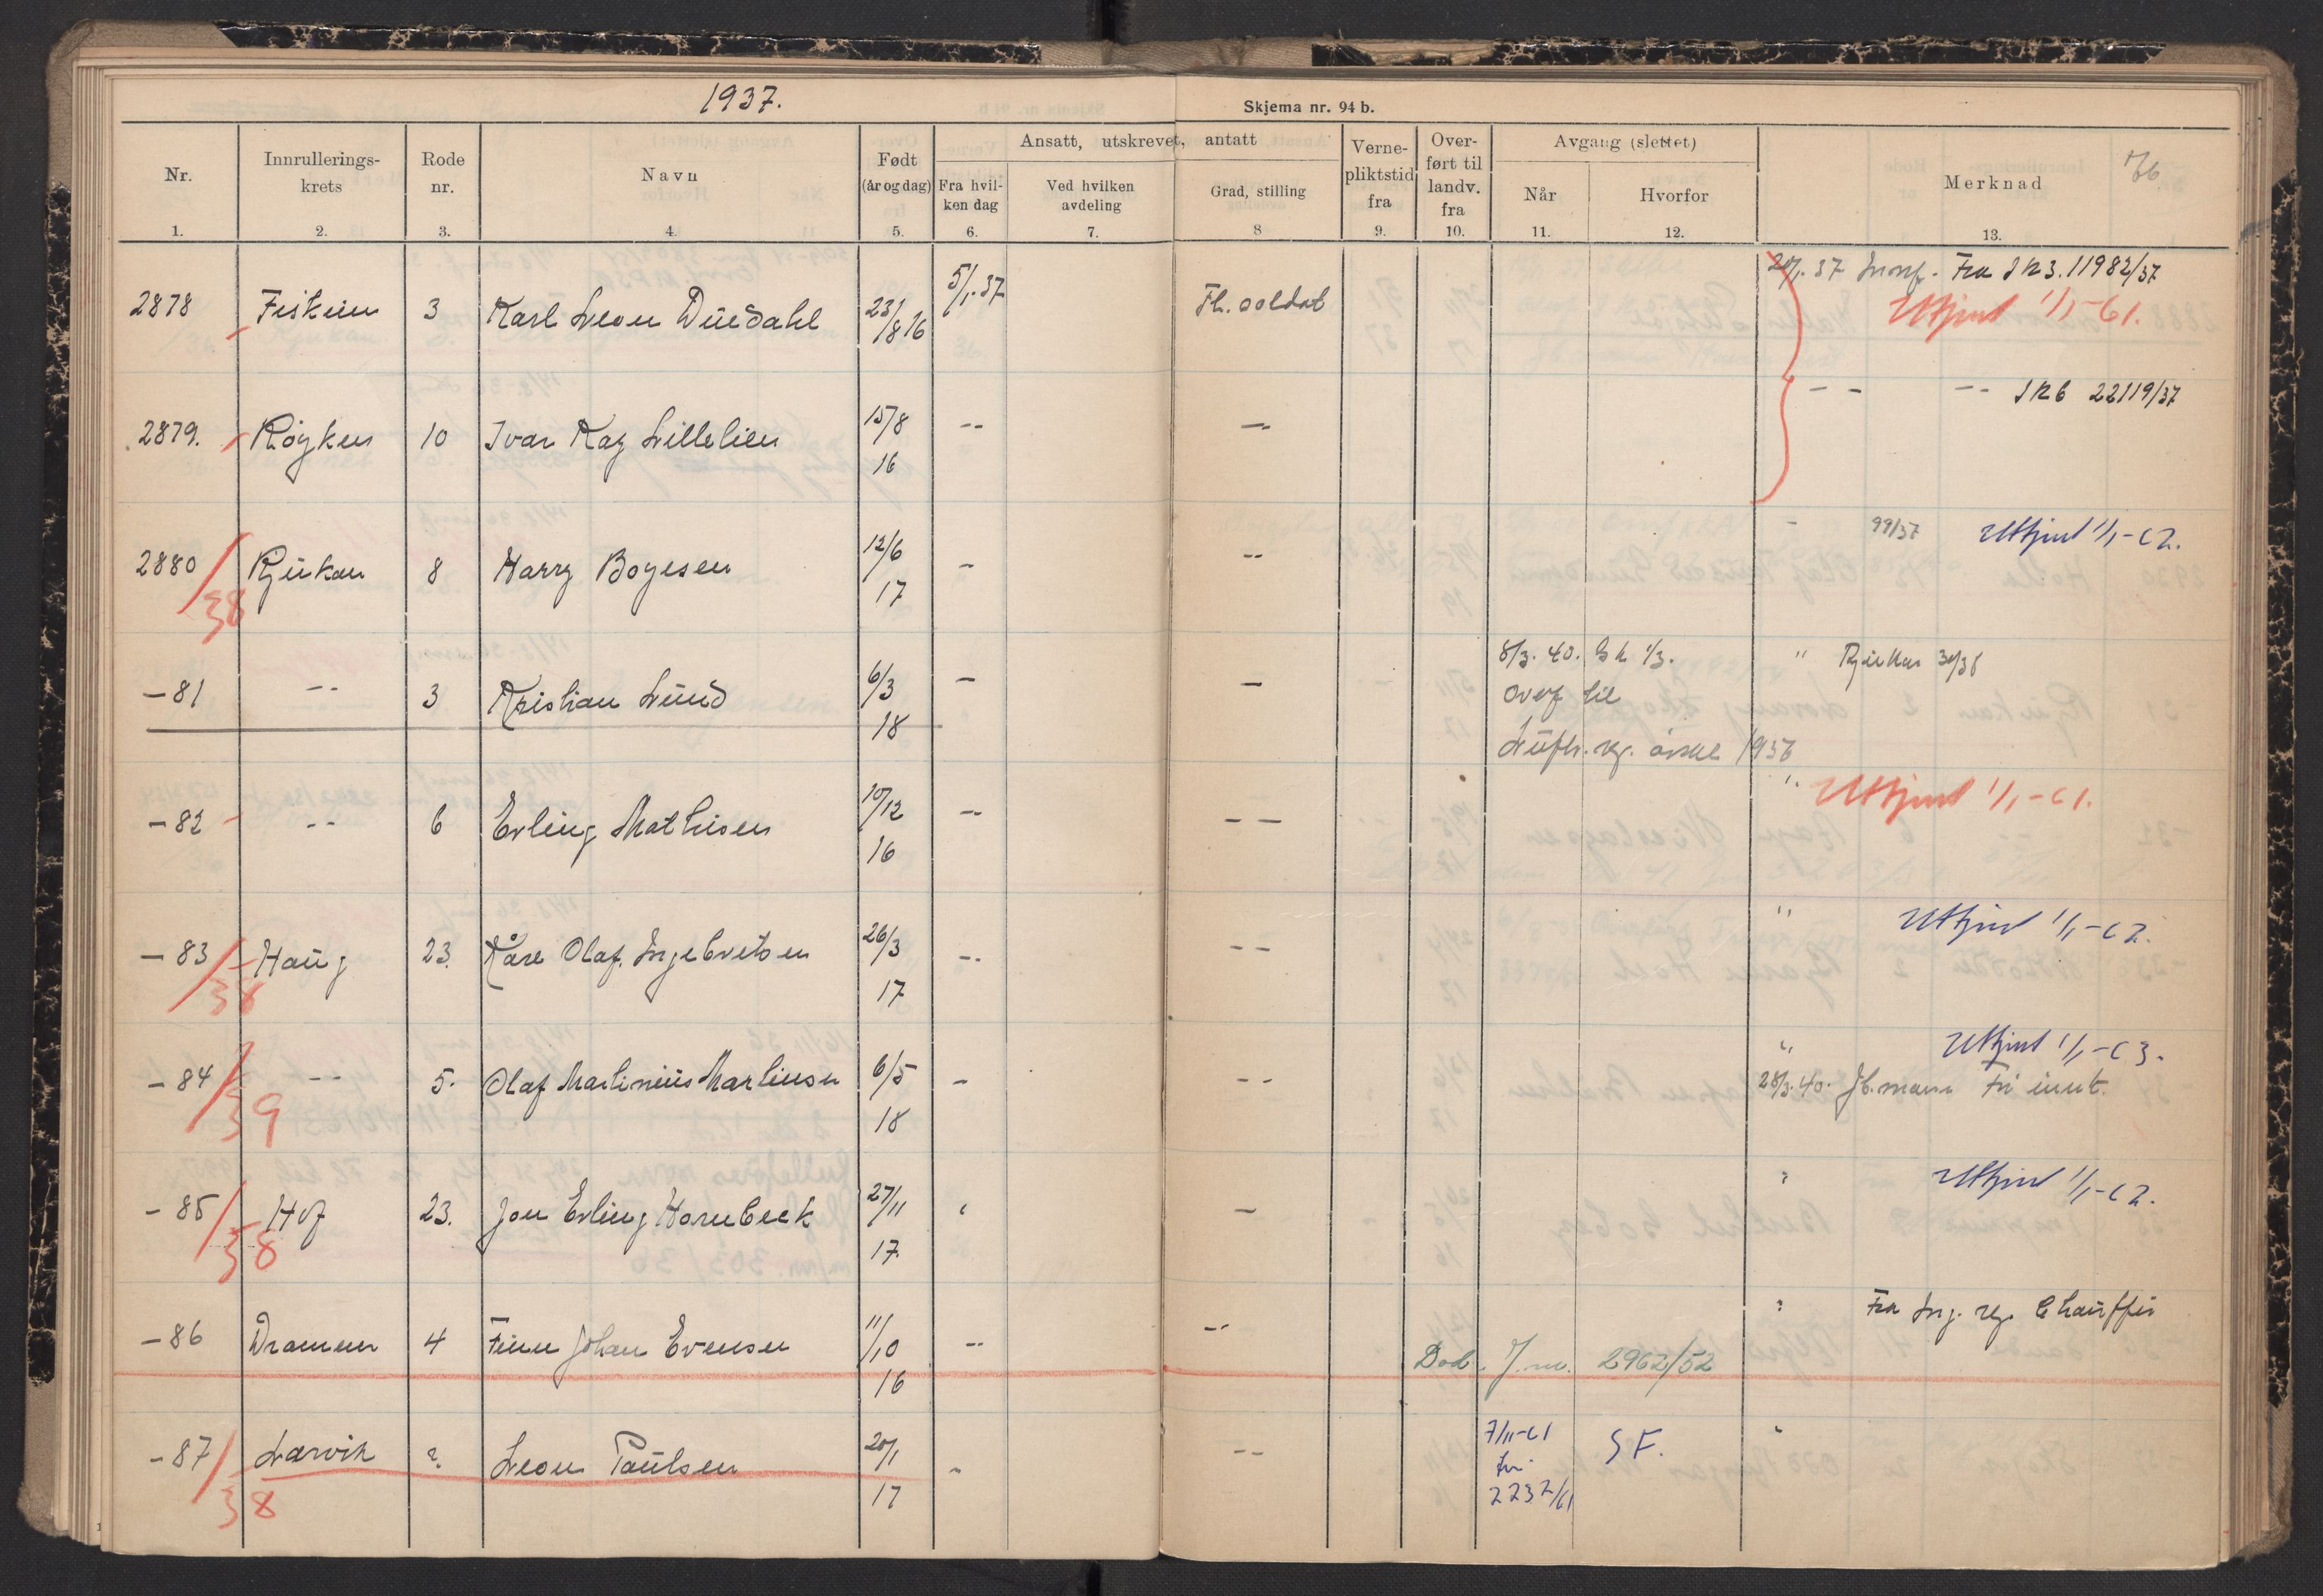 1937.
Skjema nr. 94 b.
Nr. Innrullerings-krets Rode nr. Navn Født (år og dag) Ansatt, utskrevet, antatt Verne-pliktstid fra Over-ført til landv. fra Avgang (slettet) Merknad
Fra hvil-ken dag Ved hvilken avdeling Grad, stilling Når Hvorfor
1. 2. 3. 4. 5. 6. 7. 8 9. 10. 11. 12. 13.
2878 Fiskum 3 Karl Leon Duedahl 23/8 16 5/1.37 Fl. soldat 20/1.37 Innf. Fra IR3. 11982/37
Uttjent 1/1-61.
2879. Røyken 10 Ivar Kay Lillelien 15/8 16 -- -- -- -- IR6 22119/37
2880 Rjukan 8 Harry Boyesen 12/6 17 - -- - 99/37 Uttjent 1/1-62.
38
-81 -- 3 Kristian Lund 6/3 18 - - 8/3.40. Sk 1/3. " Rjukan
overf til
Luftv. rg.
-82 -- 6 Erling Mathisen 10/12 16 -- -- " Uttjent 1/1-61.
-83 Haug 23. Kåre Olaf. Ingebretsen 26/3 17 -- -- " Uttjent 1/1-62.
38
-84 -- 5. Olaf Martinius Martinsen 6/5 18 - -- " Uttjent 1/1-63.
39
28/3.40. Fri
-85 Hof 23. Jon Erling Hornbeck 27/11 17. " - " Uttjent 1/1-62.
38
-86 Drammen 4 Finn Johan Evensen 11/10 16 -- -- " Fra Ing. rg. Chauffør
Død. J.nr. 2962/52
-87 Larvik 2. Leon Paulsen 20/1 17 - -- 7/11-61 SF. "
38
jnr.
2232/61